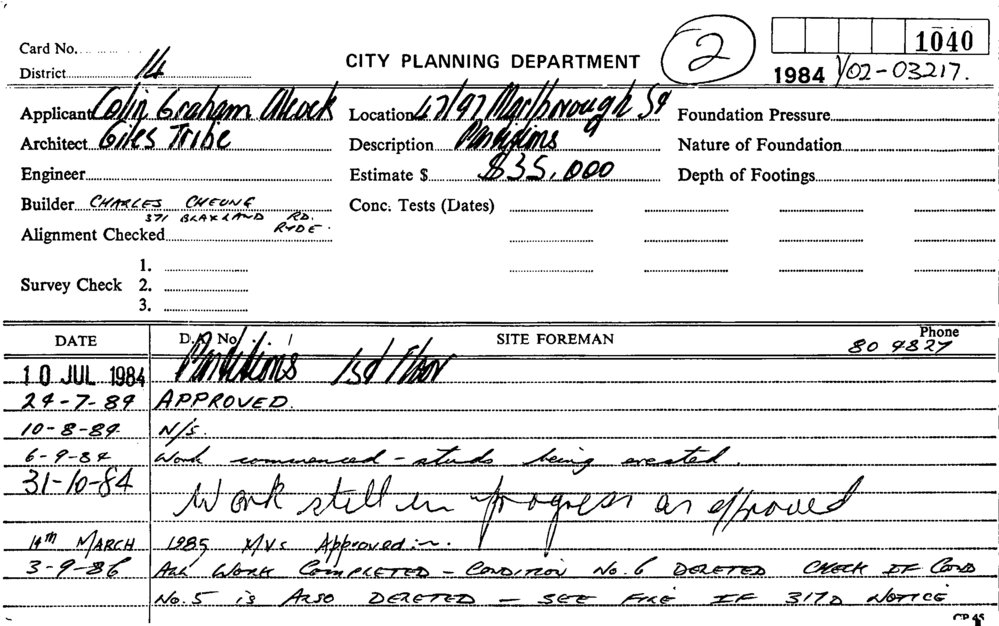 Card No.
District 14
CITY PLANNING DEPARTMENT
2
1040
1984 Y02-03217.
Applicant Colin Graham Alcock
Location 47/97 Marlborough St
Foundation Pressure
Architect Giles Tribe
Description Partitions
Nature of Foundation
Engineer
Estimate $ $35,000
Depth of Footings
Builder CHARLES CHEUNG
371 BLAXLAND RD.
RYDE.
Conc. Tests (Dates)
Alignment Checked
1.
Survey Check 2.
3.
DATE D.A. No. SITE FOREMAN Phone
80 9827
10 JUL 1984 Partitions 1st Floor
24-7-84 APPROVED.
10-8-84 N/S.
6-9-84 Work commenced - studs being erected.
31-10-84 Work still in progress as approved
14th MARCH 1985 Approved
3-9-86 ALL WORK COMPLETED - CONDITION No. 6 DELETED CHECK IF COND
No. 5 is ALSO DELETED - SEE FILE IF 317D NOTICE
CP 45